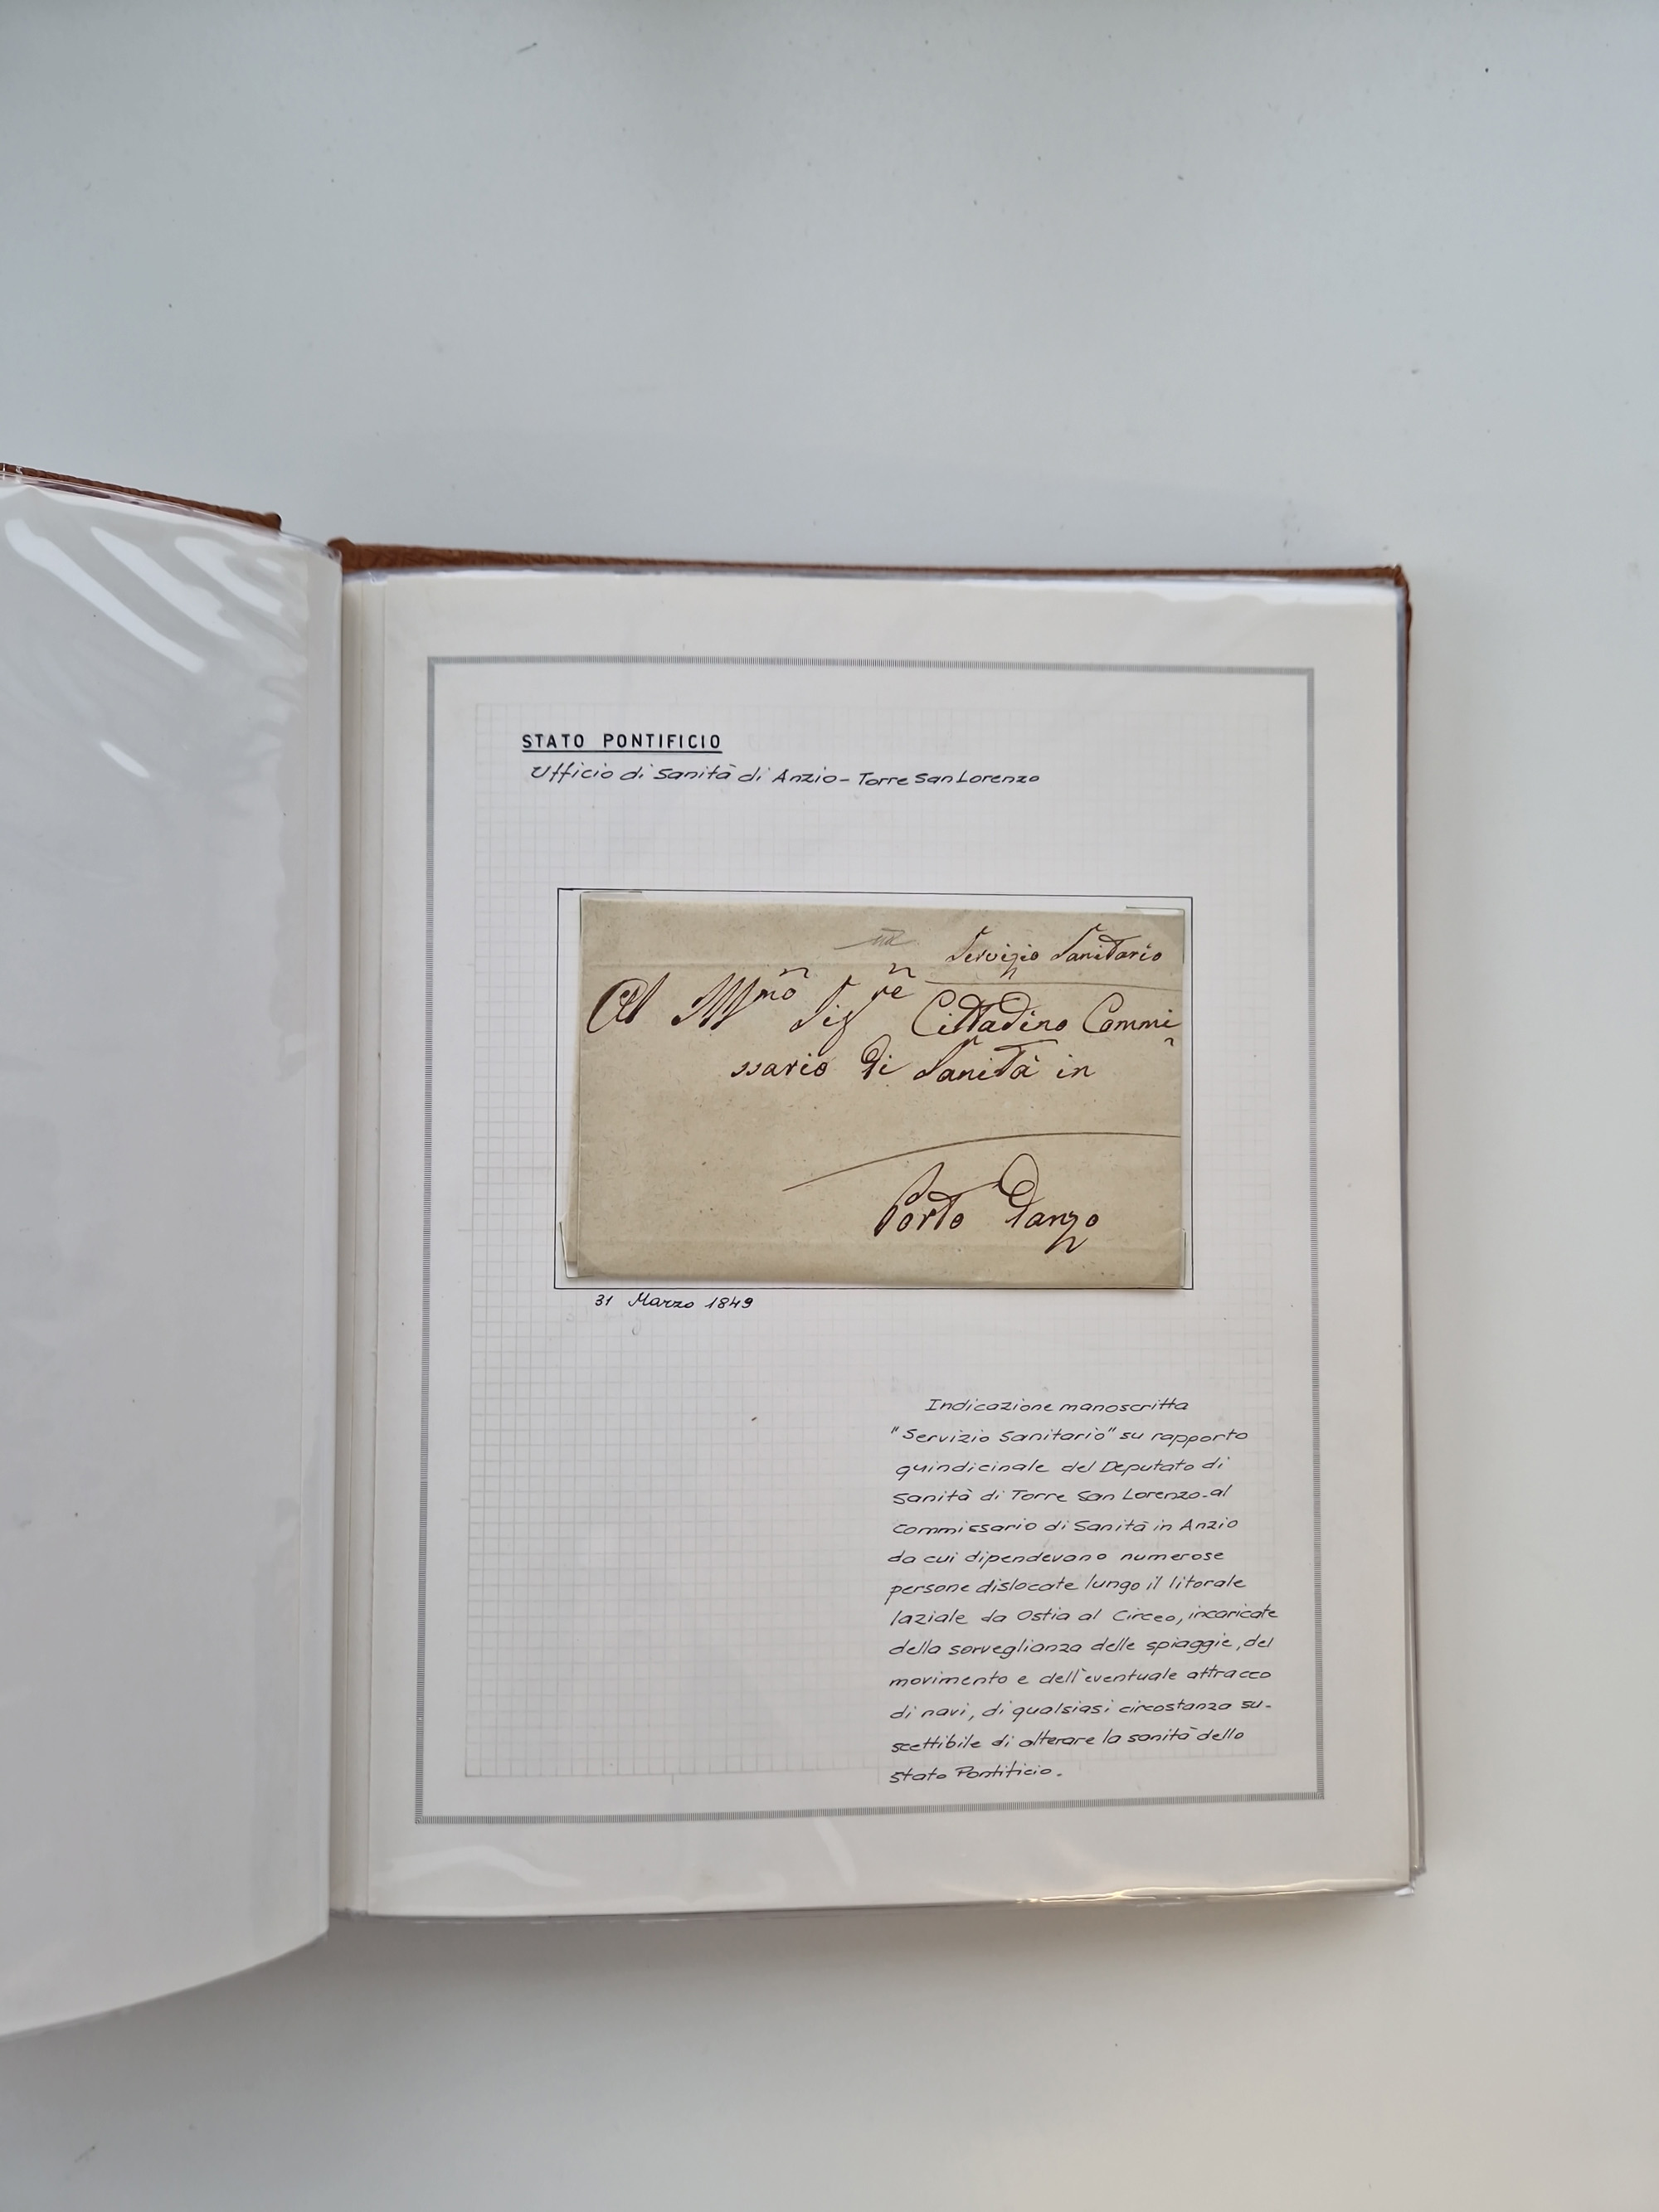 STATO PONTIFICIO
Ufficio di Sanità di Anzio - Torre San Lorenzo
Servizio Sanitario
Al Illmo Sigre Cittadino Commi
ssario di Sanità in
Porto Danzo
31 Marzo 1849
Indicazione manoscritta
"Servizio Sanitario" su rapporto
quindicinale del Deputato di
Sanità di Torre San Lorenzo-al
Commissario di Sanità in Anzio
da cui dipendevano numerose
persone dislocate lungo il litorale
laziale da Ostia al Circeo, incaricate
della sorveglianza delle spiaggie, del
movimento e dell'eventuale attracco
di navi, di qualsiasi circostanza su-
scettibile di alterare la sanità dello
Stato Pontificio.